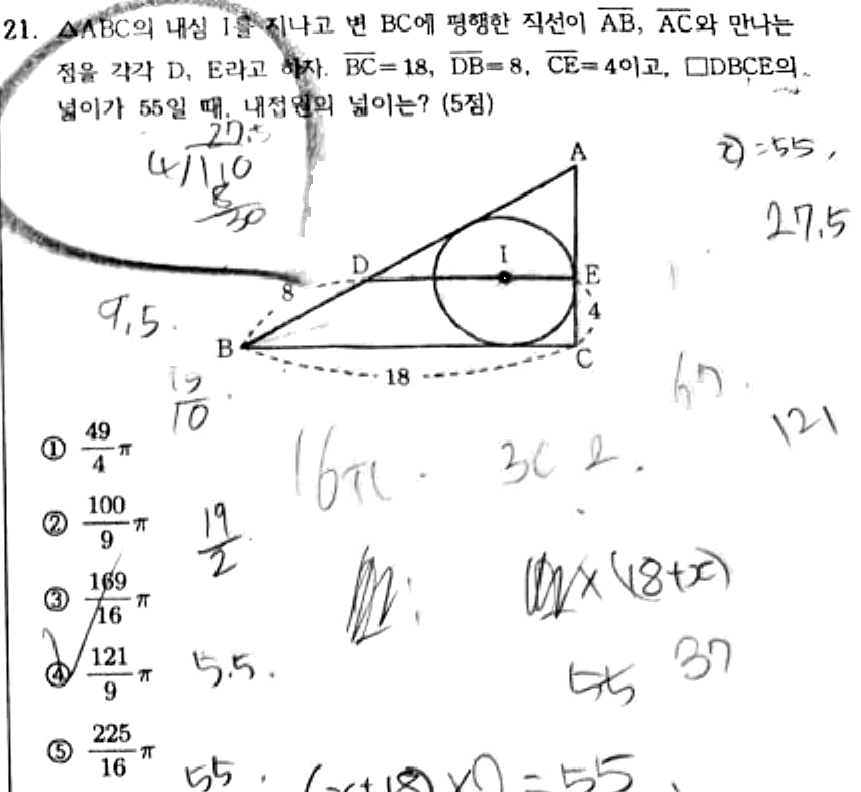 21. △ABC의 내심 I를 지나고 변 BC에 평행한 직선이 AB, AC와 만나는
점을 각각 D, E라고 하자. BC=18, DB=8, CE=4이고, □DBCE의
넓이가 55일 때, 내접원의 넓이는? (5점)
27.5
4/110
8
30
=55,
27.5
A
D I E
8
4
9.5.
B C
18
10
121
① 49/4 π
16π. 2.
② 100/9 π
19/2
×(18+x)
③ 169/16 π
④ 121/9 π
5.5.
55 37
⑤ 225/16 π
55. (x+18)×) = 55